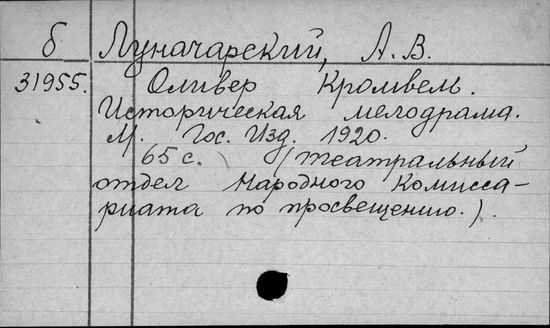 б Луначарский, А.В.
31955. Оливер Кромвель.
Историческая мелодрама.
М. Гос. Изд. 1920.
65 с. (Театральный
отдел Народного Комисса-
риата по просвещению.).